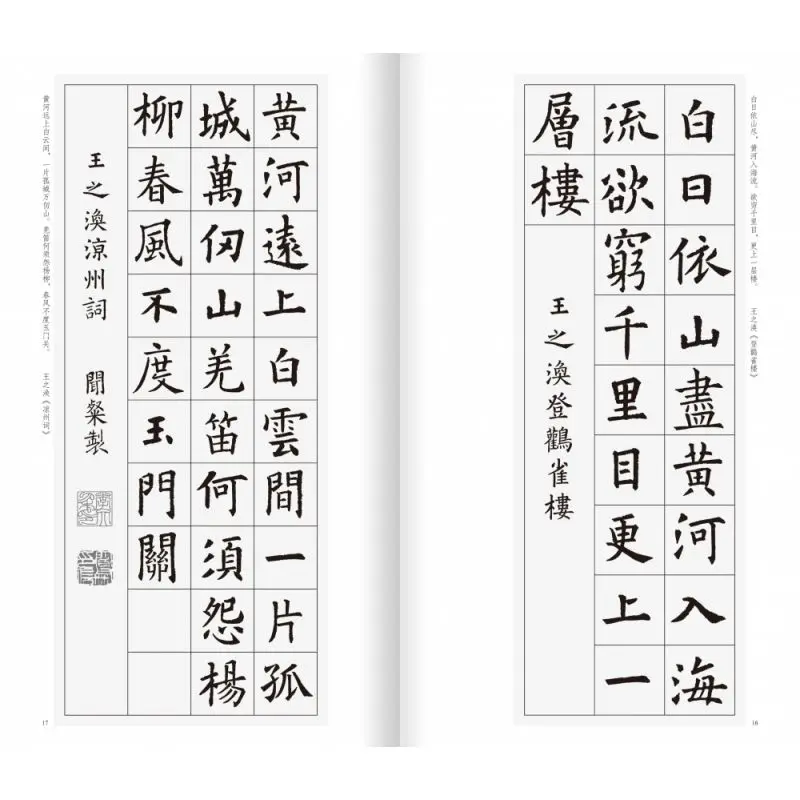 白日依山尽，黄河入海流。欲穷千里目，更上一层楼。 王之涣《登鹳雀楼》
白日依山盡黃河入海
流欲窮千里目更上一
層樓
王之渙登鸛雀樓
16
黃河遠上白雲間一片孤
城萬仞山羌笛何須怨楊
柳春風不度玉門關
王之渙涼州詞 聞粲製
黄河远上白云间，一片孤城万仞山。羌笛何须怨杨柳，春风不度玉门关。 王之涣《凉州词》
17